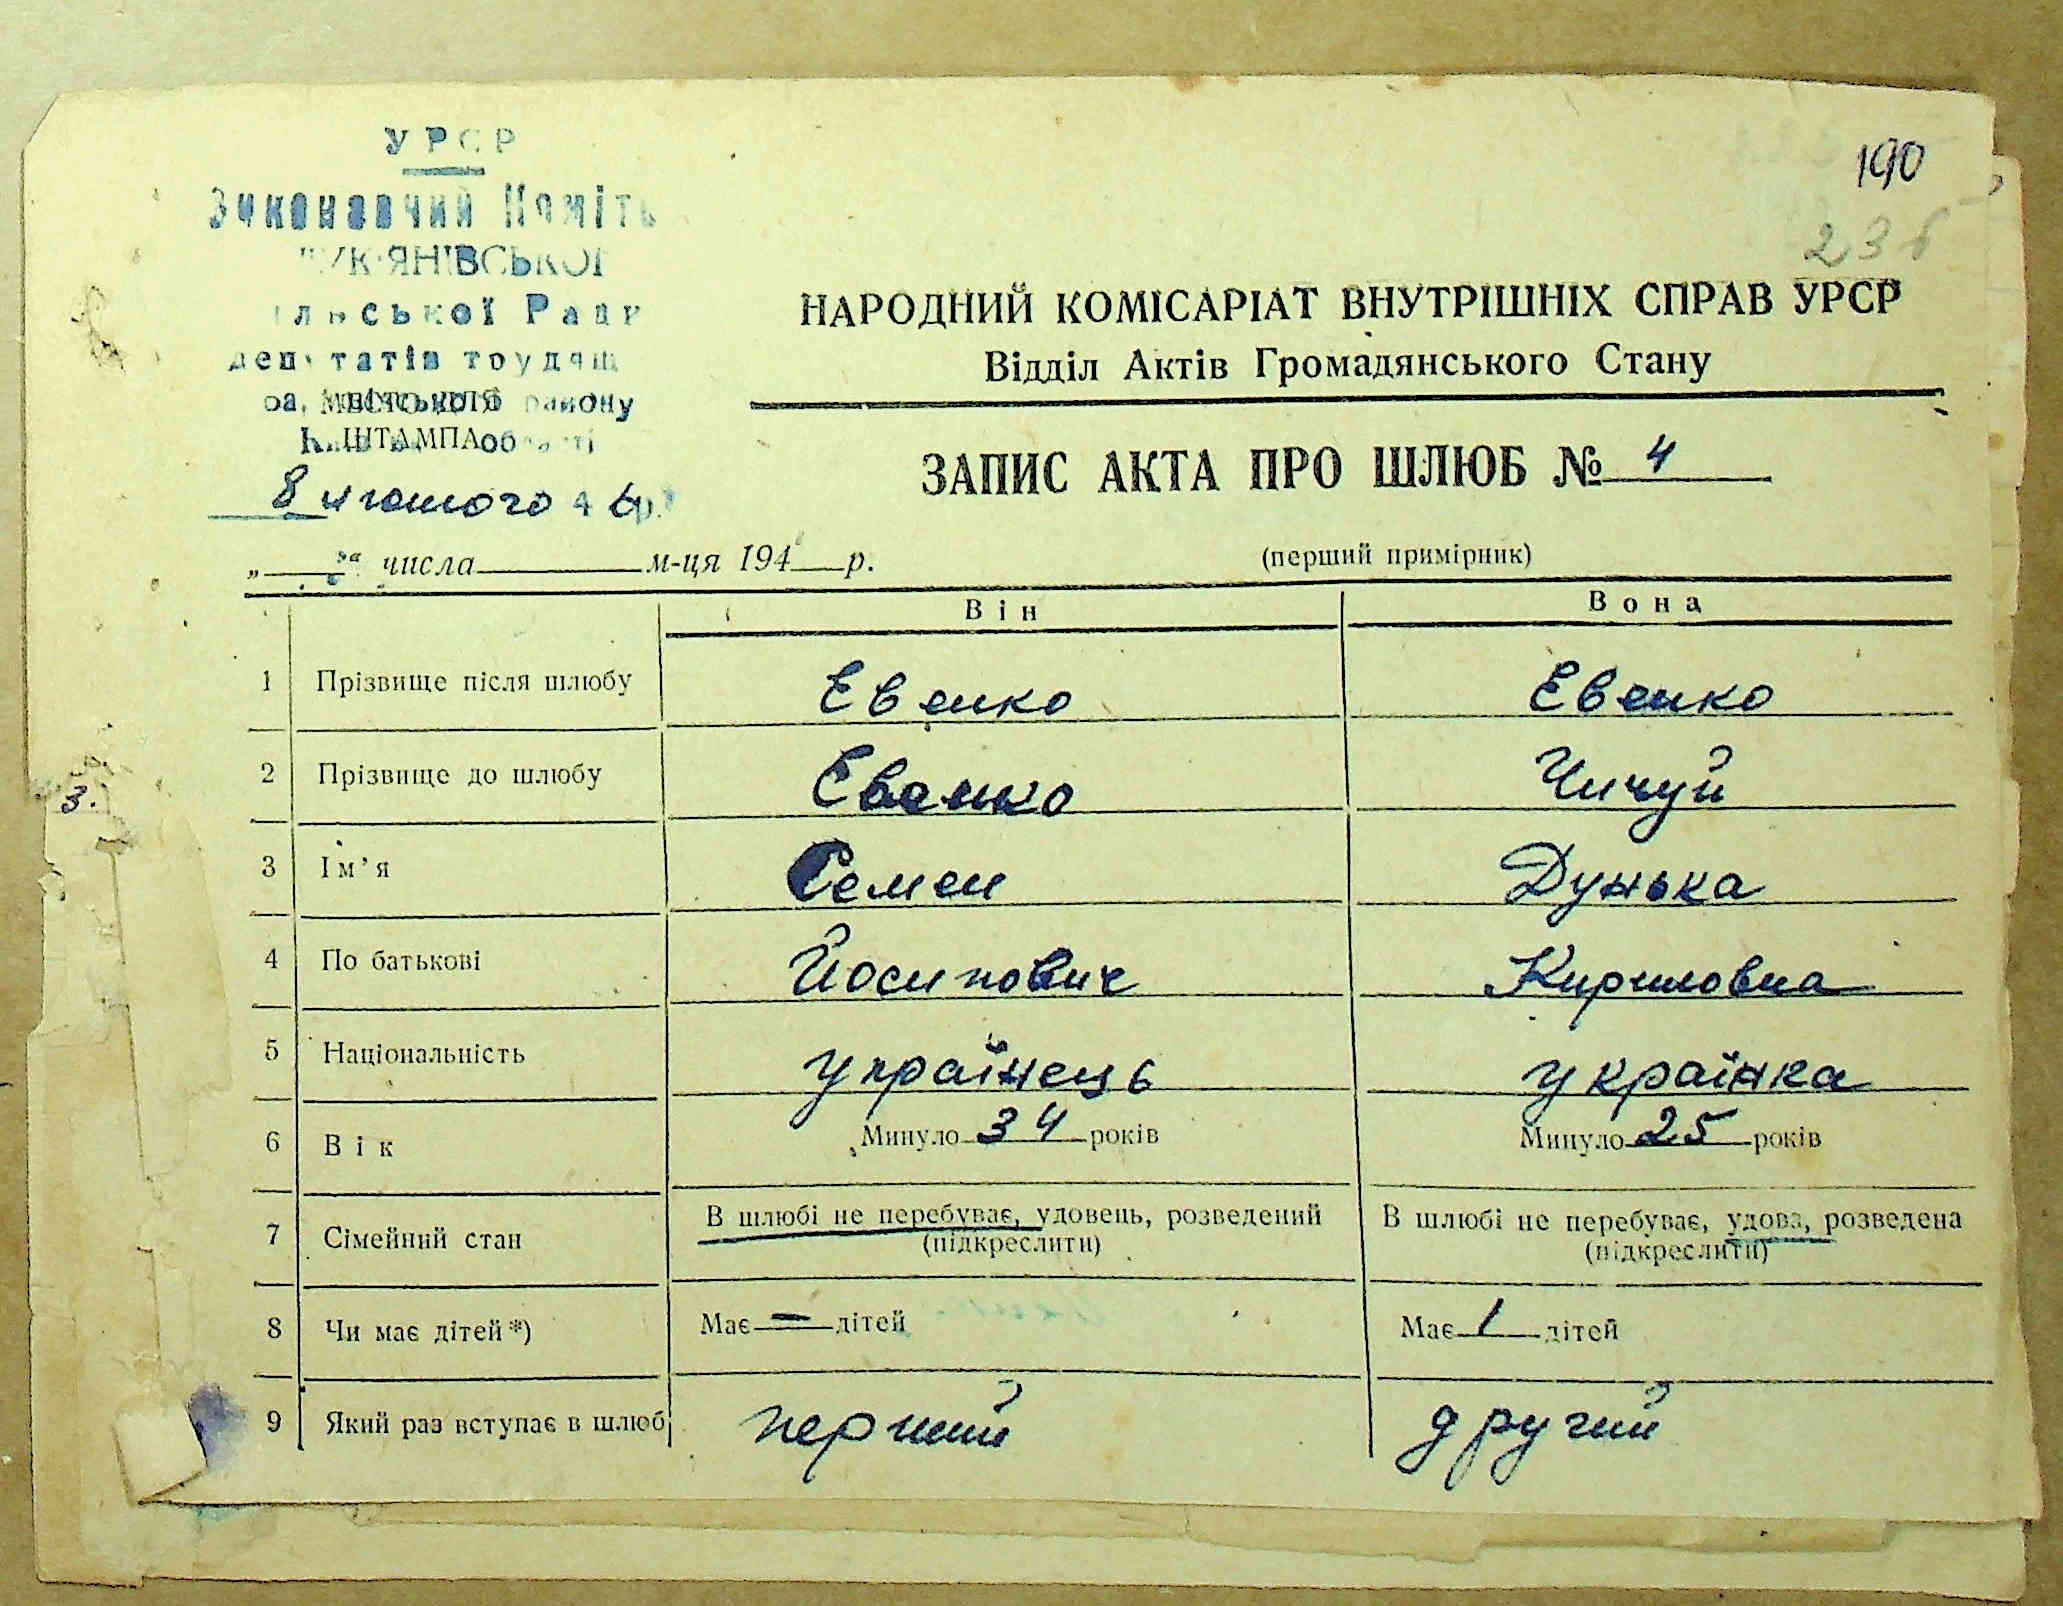 190
236
УРСР
Виконавчий Коміт
УК'ЯНІВСЬКОЇ
льської Ради
депутатів трудящ
району
МІСЦЕ ДЛЯ
ШТАМПА
8 лютого 46 р.
„___“ числа___м-ця 194__р.
НАРОДНИЙ КОМІСАРІАТ ВНУТРІШНІХ СПРАВ УРСР
Відділ Актів Громадянського Стану
ЗАПИС АКТА ПРО ШЛЮБ № 4
(перший примірник)
Він Вона
1 Прізвище після шлюбу Евенко Евенко
2 Прізвище до шлюбу Евенко Чичуй
3 Ім’я Семен Дунька
4 По батькові Йосипович Кириловна
5 Національність українець українка
6 Вік Минуло 34 років Минуло 25 років
7 Сімейний стан В шлюбі не перебуває, удовець, розведений В шлюбі не перебуває, удова, розведена
(підкреслити) (підкреслити)
8 Чи має дітей*) Має — дітей Має 1 дітей
9 Який раз вступає в шлюб перший другий
3.